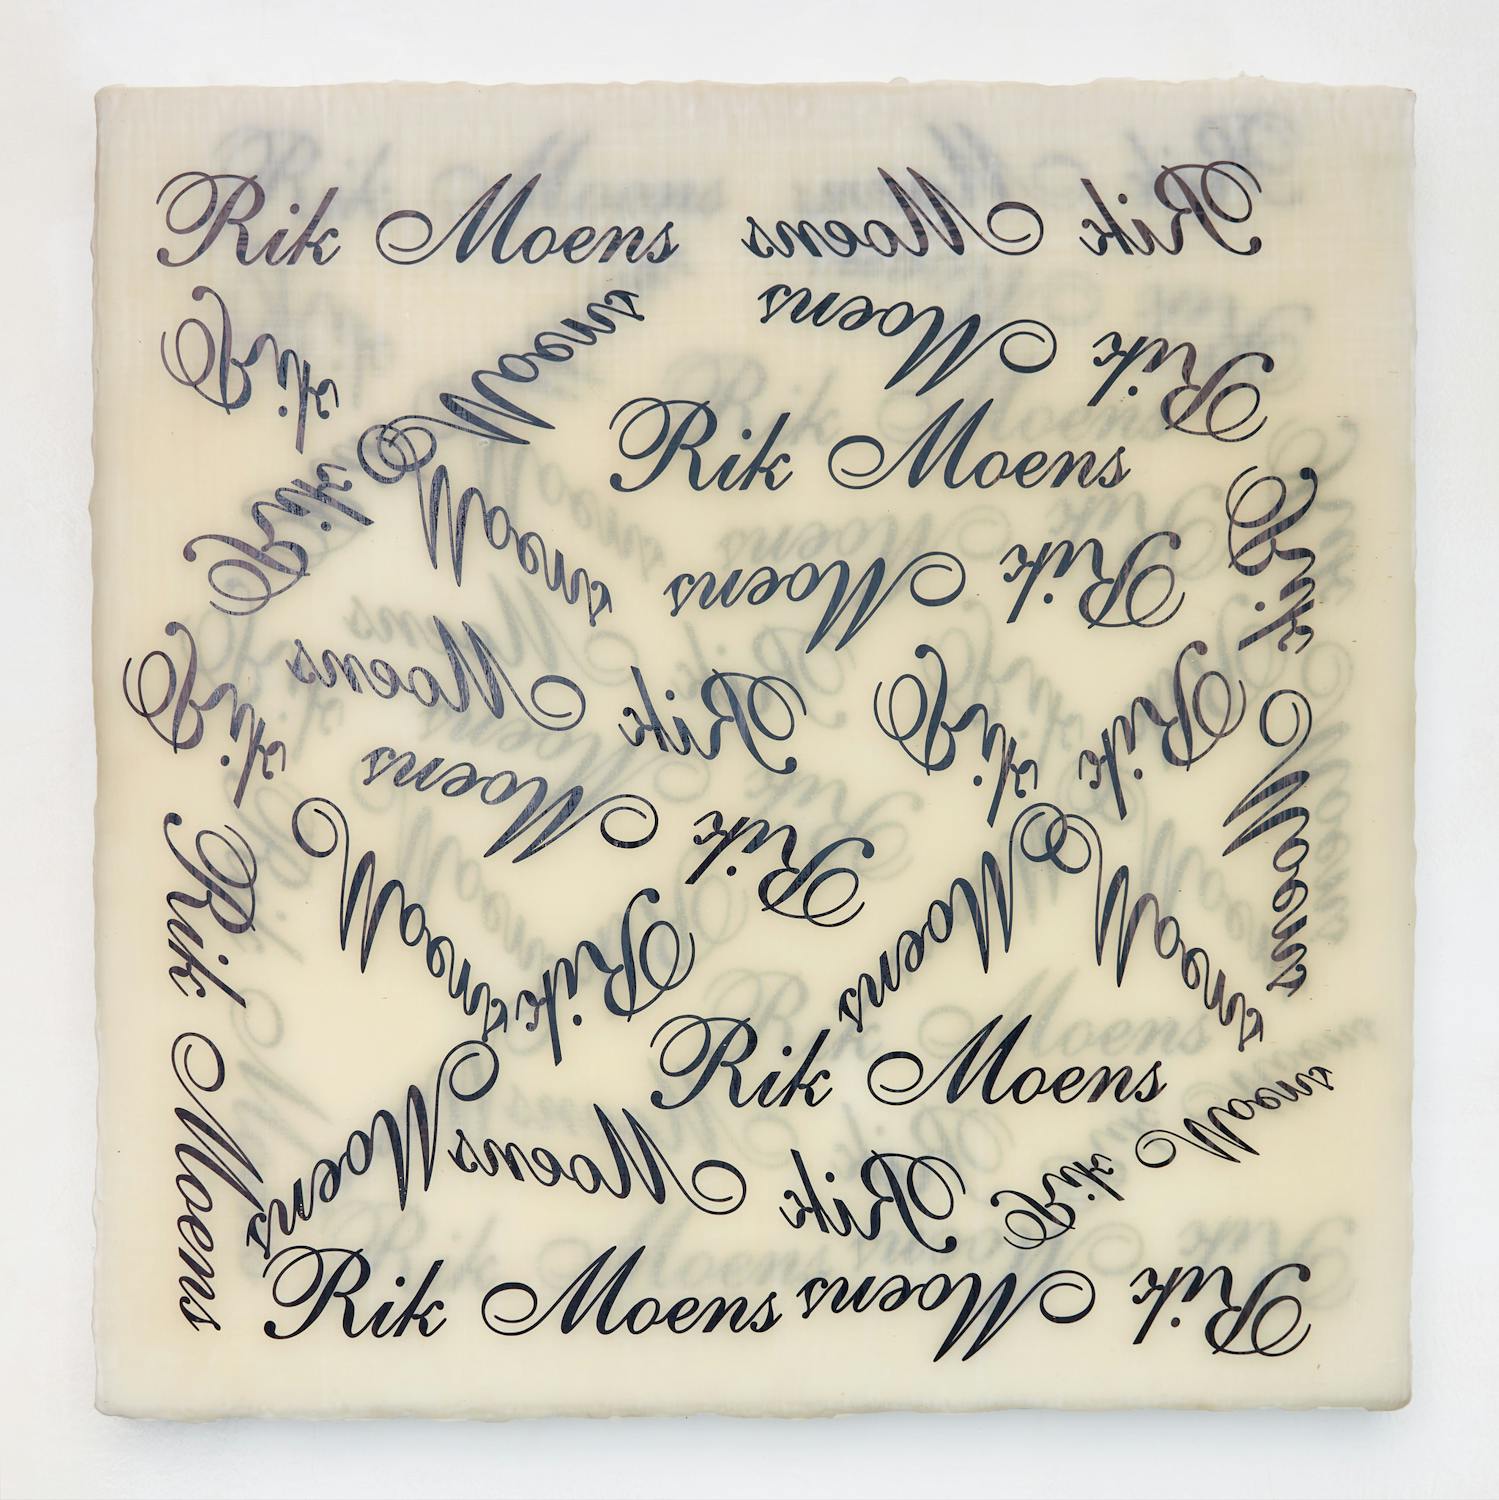 Rik Moens
Rik Moens
Rik Moens
Rik Moens
Rik Moens
Rik Moens
Rik Moens
Rik Moens
Rik Moens
Rik Moens
Rik Moens
Rik Moens
Rik Moens
Rik Moens
Rik Moens
Rik Moens
Rik Moens
Rik Moens
Rik Moens
Rik Moens